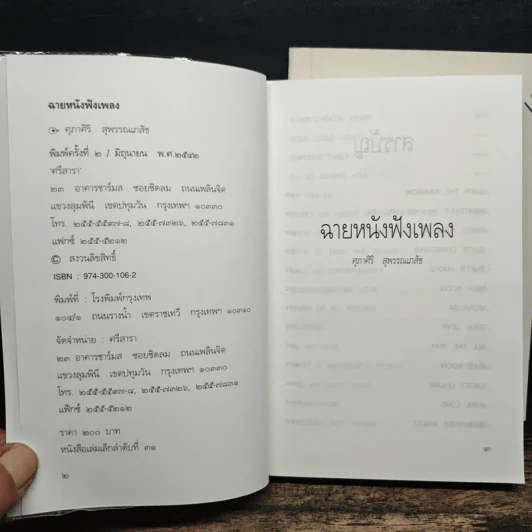 ฉายหนังฟังเพลง
ศุภาศิริ สุพรรณเภสัช
พิมพ์ครั้งที่ ๒ / มิถุนายน พ.ศ.๒๕๔๒
'ศรีสารา'
๒๓ อาคารชาร์มส ซอยชิดลม ถนนเพลินจิต
แขวงลุมพินี เขตปทุมวัน กรุงเทพฯ ๑๐๓๓๐
โทร. ๒๕๕-๕๕๙๗-๘, ๒๕๕-๗๓๒๖, ๒๕๕-๗๘๓๑
แฟกซ์ ๒๕๕-๕๒๑๒
© สงวนลิขสิทธิ์
ISBN : 974-300-106-2
พิมพ์ที่ : โรงพิมพ์กรุงเทพ
๑๐๔/๑ ถนนรางน้ำ เขตราชเทวี กรุงเทพฯ ๑๐๓๑๐
จัดจำหน่าย : ศรีสารา
๒๓ อาคารชาร์มส ซอยชิดลม ถนนเพลินจิต
แขวงลุมพินี เขตปทุมวัน กรุงเทพฯ ๑๐๓๓๐
โทร. ๒๕๕-๕๕๙๗-๘, ๒๕๕-๗๓๒๖, ๒๕๕-๗๘๓๑
แฟ็กซ์ ๒๕๕-๕๒๑๒
ราคา ๒๐๐ บาท
หนังสือเล่มเล็กลำดับที่ ๓๑
๒
ฉายหนังฟังเพลง
ศุภาศิริ สุพรรณเภสัช
๓